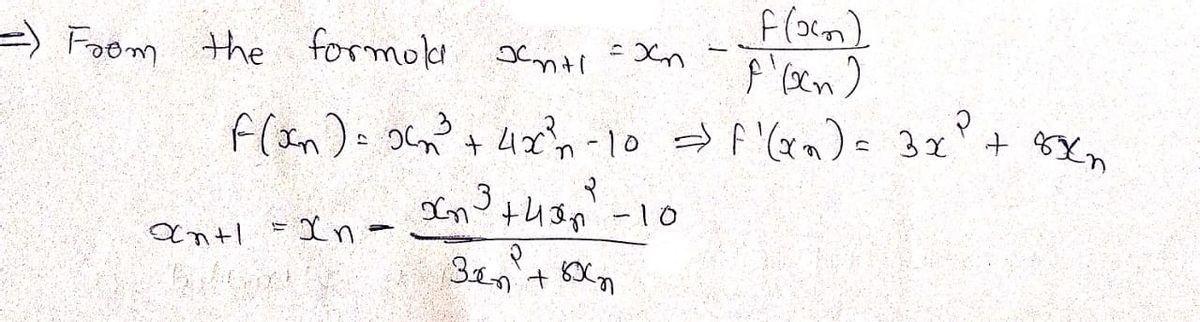 ⇒ From the formola xₙ₊₁ = xₙ - f(xₙ)/f'(xₙ)
f(xₙ) = xₙ³ + 4x²ₙ - 10 ⇒ f'(xₙ) = 3x² + 8xₙ
xₙ₊₁ = xₙ - (xₙ³ + 4xₙ² - 10)/(3xₙ² + 8xₙ)